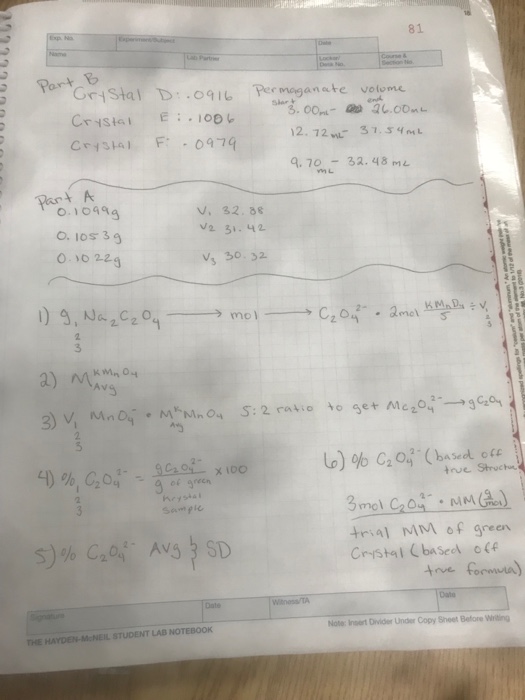 81
Exp. No.
Experiment/Subject
Date
Name
Lab Partner
Locker/
Desk No.
Course &
Section No.
Part B
Crystal D: .0916
Crystal E: .1006
Crystal F: .0979
Permaganate volume
start end
3.00mL - 26.00mL
12.72mL - 37.54mL
9.70 mL - 32.48 mL
Part A
0.1099g V1 32.88
0.1053g V2 31.42
0.1022g V3 30.32
1) g1 Na2C2O4 → mol → C2O4 2- • 2mol KMnO4 / 5 ÷ V1
2
3
2) M KMnO4 Avg
3) V1 MnO4- • M KMnO4 5:2 ratio to get MC2O4 2- → gC2O4
2
3
4) %1 C2O4 2- = gC2O4 2- / g of green krystal sample x100
2
3
5) % C2O4 2- Avg & SD
6) % C2O4 2- (based off
true Structure
3mol C2O4 2- • MM (g/mol)
trial MM of green
Crystal (based off
true formula)
Signature
Date
Witness/TA
Date
THE HAYDEN-McNEIL STUDENT LAB NOTEBOOK
Note: Insert Divider Under Copy Sheet Before Writing